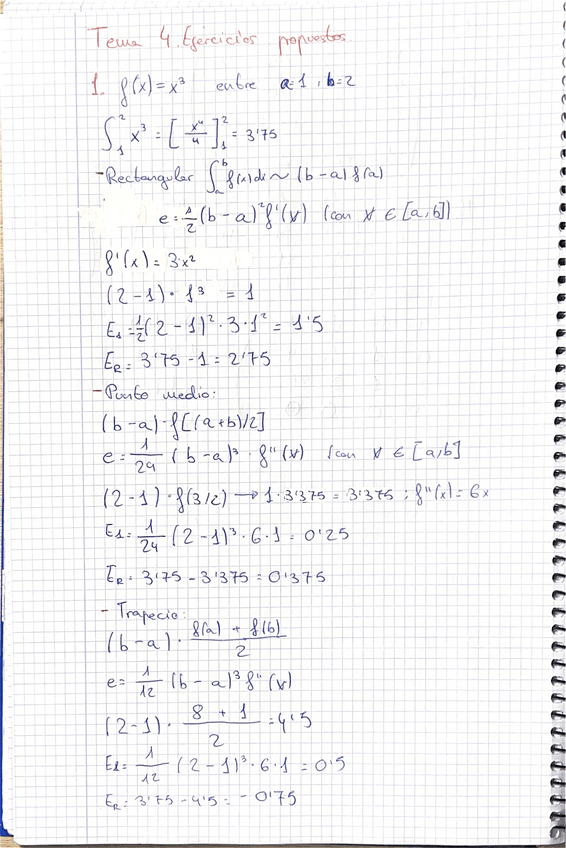 Tema 4. Ejercicios propuestos.
1. f(x) = x³ entre a=1, b=2
∫₁² x³ = [x⁴/4]₁² = 3'75
- Rectangular ∫ₐᵇ f(x)dx ~ (b-a) f(a)
e = 1/2 (b-a)² f'(ɣ) (con ɣ ∈ [a,b])
f'(x) = 3·x²
(2-1)·1³ = 1
E₁ = 1/2 (2-1)²·3·1² = 1'5
E_R = 3'75 - 1 = 2'75
- Punto medio:
(b-a)·f[(a+b)/2]
e = 1/24 (b-a)³·f''(ɣ) (con ɣ ∈ [a,b]
(2-1)·f(3/2) → 1·3'375 = 3'375 ; f''(x) = 6x
E₁ = 1/24 (2-1)³·6·1 = 0'25
E_R = 3'75 - 3'375 = 0'375
- Trapecio:
(b-a)· f(a) + f(b) / 2
e = 1/12 (b-a)³ f''(ɣ)
(2-1)· 8 + 1 / 2 = 4'5
E₁ = 1/12 (2-1)³·6·1 = 0'5
E_R = 3'75 - 4'5 = -0'75